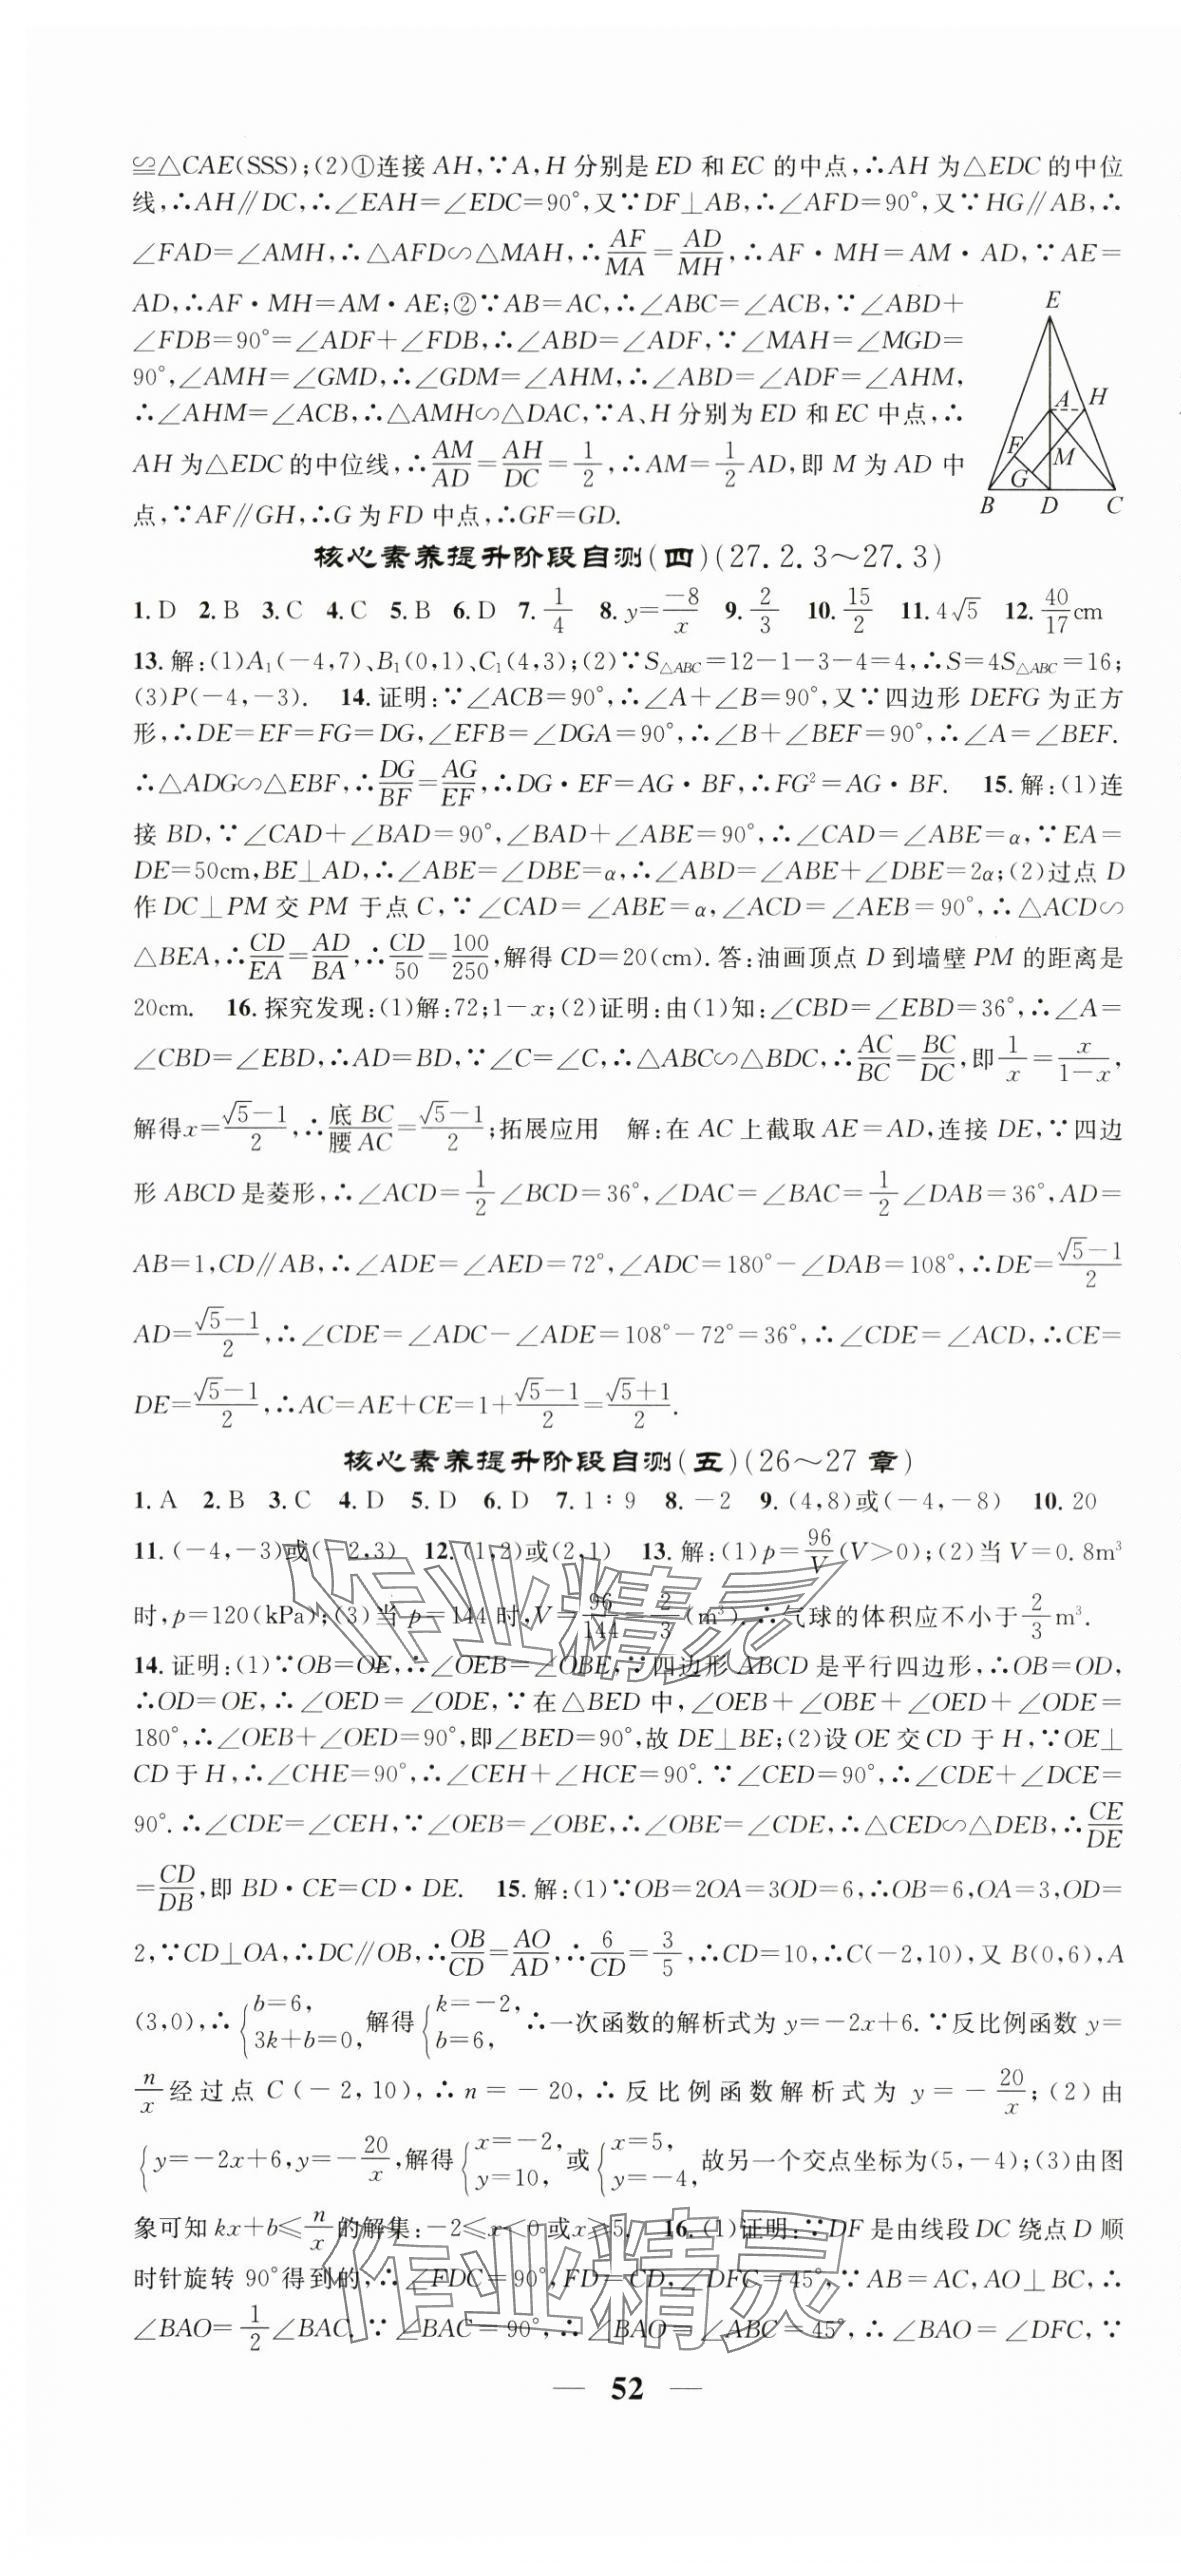 ≌△CAE(SSS);(2)①连接AH,∵A,H分别是ED和EC的中点,∴AH为△EDC的中位
线,∴AH∥DC,∴∠EAH=∠EDC=90°,又∵DF⊥AB,∴∠AFD=90°,又∵HG∥AB,∴
∠FAD=∠AMH,∴△AFD∽△MAH,∴AF/MA=AD/MH,∴AF·MH=AM·AD,∵AE=
AD,∴AF·MH=AM·AE;②∵AB=AC,∴∠ABC=∠ACB,∵∠ABD+
∠FDB=90°=∠ADF+∠FDB,∴∠ABD=∠ADF,∵∠MAH=∠MGD=
90°,∠AMH=∠GMD,∴∠GDM=∠AHM,∴∠ABD=∠ADF=∠AHM,
∴∠AHM=∠ACB,∴△AMH∽△DAC,∵A、H分别为ED和EC中点,∴
AH为△EDC的中位线,∴AM/AD=AH/DC=1/2,∴AM=1/2AD,即M为AD中
点,∵AF∥GH,∴G为FD中点,∴GF=GD.
E
A H
F M
G
B D C
核心素养提升阶段自测(四)(27.2.3~27.3)
1.D 2.B 3.C 4.C 5.B 6.D 7.1/4 8.y=-8/x 9.2/3 10.15/2 11.4√5 12.40/17cm
13.解:(1)A₁(-4,7)、B₁(0,1)、C₁(4,3);(2)∵S△ABC=12-1-3-4=4,∴S=4S△ABC=16;
(3)P(-4,-3). 14.证明:∵∠ACB=90°,∴∠A+∠B=90°,又∵四边形DEFG为正方
形,∴DE=EF=FG=DG,∠EFB=∠DGA=90°,∴∠B+∠BEF=90°,∴∠A=∠BEF.
∴△ADG∽△EBF,∴DG/BF=AG/EF,∴DG·EF=AG·BF,∴FG²=AG·BF. 15.解:(1)连
接BD,∵∠CAD+∠BAD=90°,∠BAD+∠ABE=90°,∴∠CAD=∠ABE=α,∵EA=
DE=50cm,BE⊥AD,∴∠ABE=∠DBE=α,∴∠ABD=∠ABE+∠DBE=2α;(2)过点D
作DC⊥PM交PM于点C,∵∠CAD=∠ABE=α,∠ACD=∠AEB=90°,∴△ACD∽
△BEA,∴CD/EA=AD/BA,∴CD/50=100/250,解得CD=20(cm).答:油画顶点D到墙壁PM的距离是
20cm. 16.探究发现:(1)解:72;1-x;(2)证明:由(1)知:∠CBD=∠EBD=36°,∴∠A=
∠CBD=∠EBD,∴AD=BD,∵∠C=∠C,∴△ABC∽△BDC,∴AC/BC=BC/DC,即1/x=x/(1-x),
解得x=(√5-1)/2,∴底BC/腰AC=(√5-1)/2;拓展应用 解:在AC上截取AE=AD,连接DE,∵四边
形ABCD是菱形,∴∠ACD=1/2∠BCD=36°,∠DAC=∠BAC=1/2∠DAB=36°,AD=
AB=1,CD∥AB,∴∠ADE=∠AED=72°,∠ADC=180°-∠DAB=108°,∴DE=(√5-1)/2
AD=(√5-1)/2,∴∠CDE=∠ADC-∠ADE=108°-72°=36°,∴∠CDE=∠ACD,∴CE=
DE=(√5-1)/2,∴AC=AE+CE=1+(√5-1)/2=(√5+1)/2.
核心素养提升阶段自测(五)(26~27章)
1.A 2.B 3.C 4.D 5.D 6.D 7.1∶9 8.-2 9.(4,8)或(-4,-8) 10.20
11.(-4,-3)或(-2,3) 12.(1,2)或(2,1) 13.解:(1)p=96/V(V>0);(2)当V=0.8m³
时,p=120(kPa);(3)当p=144时,V=96/144=2/3(m³).∴气球的体积应不小于2/3m³.
14.证明:(1)∵OB=OE,∴∠OEB=∠OBE,∵四边形ABCD是平行四边形,∴OB=OD,
∴OD=OE,∴∠OED=∠ODE,∵在△BED中,∠OEB+∠OBE+∠OED+∠ODE=
180°,∴∠OEB+∠OED=90°,即∠BED=90°,故DE⊥BE;(2)设OE交CD于H,∵OE⊥
CD于H,∴∠CHE=90°,∴∠CEH+∠HCE=90°.∵∠CED=90°,∴∠CDE+∠DCE=
90°.∴∠CDE=∠CEH,∵∠OEB=∠OBE,∴∠OBE=∠CDE,∴△CED∽△DEB,∴CE/DE
=CD/DB,即BD·CE=CD·DE. 15.解:(1)∵OB=2OA=3OD=6,∴OB=6,OA=3,OD=
2,∵CD⊥OA,∴DC∥OB,∴OB/CD=AO/AD,∴6/CD=3/5,∴CD=10,∴C(-2,10),又B(0,6),A
(3,0),∴{b=6, 3k+b=0,解得{k=-2, b=6,∴一次函数的解析式为y=-2x+6.∵反比例函数y=
n/x经过点C(-2,10),∴n=-20,∴反比例函数解析式为y=-20/x;(2)由
{y=-2x+6,y=-20/x,解得{x=-2, y=10,或{x=5, y=-4,故另一个交点坐标为(5,-4);(3)由图
象可知kx+b≤n/x的解集:-2≤x<0或x≥5. 16.(1)证明:∵DF是由线段DC绕点D顺
时针旋转90°得到的,∴∠FDC=90°,FD=CD,∠DFC=45°,∵AB=AC,AO⊥BC,∴
∠BAO=1/2∠BAC.∵∠BAC=90°,∴∠BAO=∠ABC=45°,∴∠BAO=∠DFC,∵
作业精灵
作业精灵
— 52 —